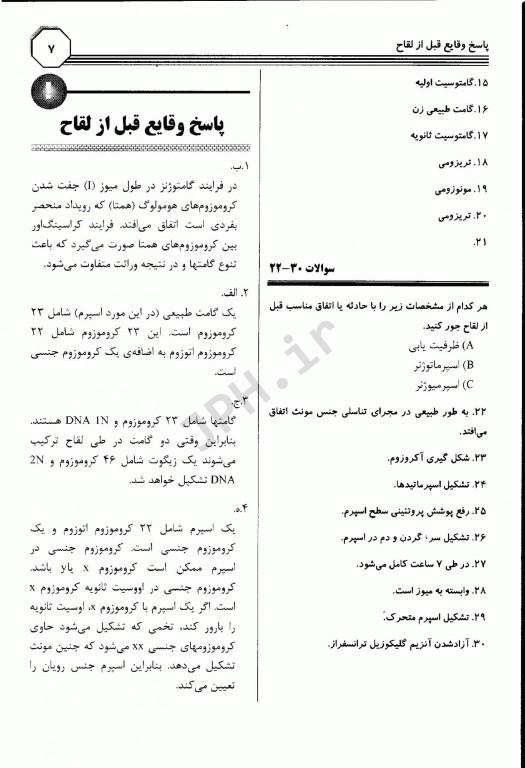 پاسخ وقایع قبل از لقاح
۷
۱۵.گامتوسیت اولیه
۱۶.گامت طبیعی زن
۱۷.گامتوسیت ثانویه
۱۸. تریزومی
۱۹. مونوزومی
۲۰. تریزومی
۲۱.
سوالات ۳۰-۲۲
هر کدام از مشخصات زیر را با حادثه یا اتفاق مناسب قبل
از لقاح جور کنید.
A) ظرفیت یابی
B) اسپرماتوژنز
C) اسپرمیوژنز
۲۲. به طور طبیعی در مجرای تناسلی جنس مونث اتفاق
می‌افتد.
۲۳. شکل گیری آکروزوم.
۲۴. تشکیل اسپرماتیدها.
۲۵. رفع پوشش پروتئینی سطح اسپرم.
۲۶. تشکیل سر، گردن و دم در اسپرم.
۲۷. در طی ۷ ساعت کامل می‌شود.
۲۸. وابسته به میوز است.
۲۹. تشکیل اسپرم متحرک.
۳۰. آزادشدن آنزیم گلیکوزیل ترانسفراز.
پاسخ وقایع قبل از لقاح
۱.ب.
در فرایند گامتوژنز در طول میوز (I) جفت شدن
کروموزوم‌های هومولوگ (همتا) که رویداد منحصر
بفردی است اتفاق می‌افتد. فرایند کراسینگ‌اور
بین کروموزوم‌های همتا صورت می‌گیرد که باعث
تنوع گامتها و در نتیجه وراثت متفاوت می‌شود.
۲. الف.
یک گامت طبیعی (در این مورد اسپرم) شامل ۲۳
کروموزوم است. این ۲۳ کروموزوم شامل ۲۲
کروموزوم اتوزوم به اضافه‌ی یک کروموزوم جنسی
است.
۳.ج.
گامتها شامل ۲۳ کروموزوم و DNA 1N هستند.
بنابراین وقتی دو گامت در طی لقاح ترکیب
می‌شوند یک زیگوت شامل ۴۶ کروموزوم و 2N
DNA تشکیل خواهد شد.
۴.ه.
یک اسپرم شامل ۲۲ کروموزوم اتوزوم و یک
کروموزوم جنسی است. کروموزوم جنسی در
اسپرم ممکن است کروموزوم x یاy باشد.
کروموزوم جنسی در اووسیت ثانویه کروموزوم x
است. اگر یک اسپرم با کروموزوم x، اوسیت ثانویه
را بارور کند، تخمی که تشکیل می‌شود حاوی
کروموزومهای جنسی xx می‌شود که جنین مونث
تشکیل می‌دهد. بنابراین اسپرم جنس رویان را
تعیین می‌کند.
JPH.ir